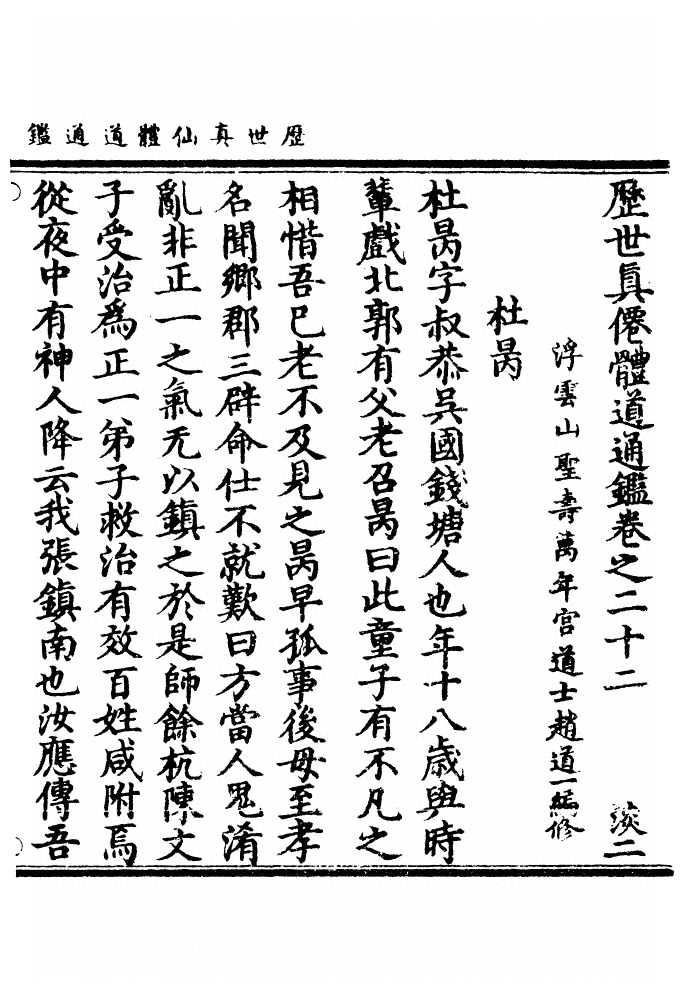 歷世真仙體道通鑑
歷世真僊體道通鑑卷之二十二 淡二
浮雲山聖壽萬年宮道士趙道一編修
杜昺
杜昺字叔恭吳國錢塘人也年十八歲與時
輩戲北郭有父老召昺曰此童子有不凡之
相惜吾已老不及見之昺早孤事後母至孝
名聞鄉郡三辟命仕不就歎曰方當人鬼淆
亂非正一之氣无以鎮之於是師餘杭陳文
子受治為正一弟子救治有效百姓咸附焉
從夜中有神人降云我張鎮南也汝應傳吾